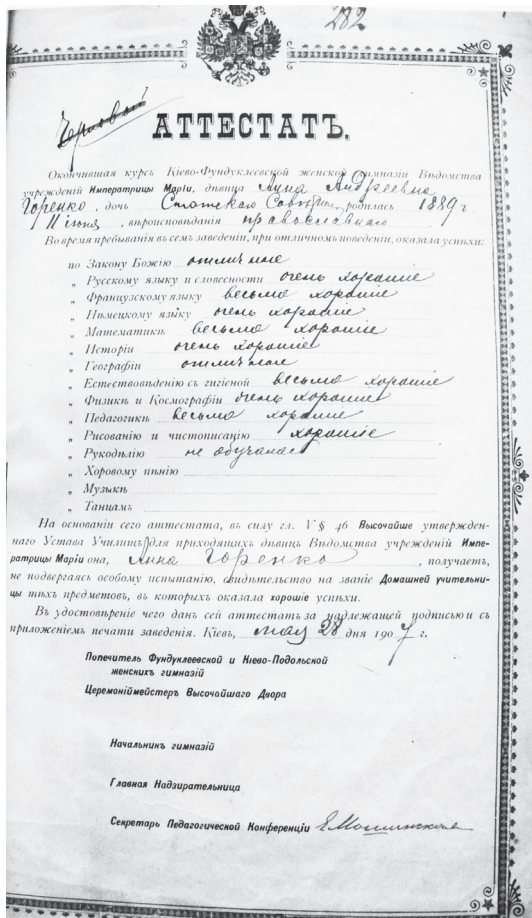 282
Черновой
АТТЕСТАТЪ.
Окончившая курсъ Кіево-Фундуклеевской женской гимназіи Вѣдомства
учрежденій Императрицы Маріи, дѣвица Анна Андреевна
Горенко, дочь Статскаго Совѣтн., родилась 1889 г
11 іюня, вѣроисповѣданія православнаго
Во время пребыванія въ семъ заведеніи, при отличномъ поведеніи, оказала успѣхи:
по Закону Божію отличные
„ Русскому языку и словесности очень хорошіе
„ Французскому языку весьма хорошіе
„ Нѣмецкому языку очень хорошіе
„ Математикѣ весьма хорошіе
„ Исторіи очень хорошіе
„ Географіи отличные
„ Естествовѣдѣнію съ гигіеной весьма хорошіе
„ Физикѣ и Космографіи очень хорошіе
„ Педагогикѣ весьма хорошіе
„ Рисованію и чистописанію хорошіе
„ Рукодѣлію не обучалась
„ Хоровому пѣнію
„ Музыкѣ
„ Танцамъ
На основаніи сего аттестата, въ силу гл. V § 46 Высочайше утвержден-
наго Устава Училищъ для приходящихъ дѣвицъ Вѣдомства учрежденій Импе-
ратрицы Маріи она, Анна Горенко, получаетъ,
не подвергаясь особому испытанію, свидѣтельство на званіе Домашней учительни-
цы тѣхъ предметовъ, въ которыхъ оказала хорошіе успѣхи.
Въ удостовѣреніе чего данъ сей аттестатъ за надлежащей подписью и съ
приложеніемъ печати заведенія. Кіевъ, мая 28 дня 1907 г.
Попечитель Фундуклеевской и Кіево-Подольской
женскихъ гимназій
Церемоніймейстеръ Высочайшаго Двора
Начальникъ гимназій
Главная Надзирательница
Секретарь Педагогической Конференціи